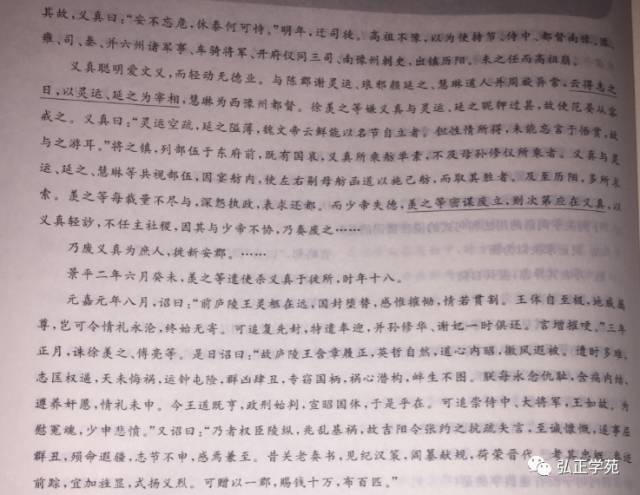 其故，义真曰：“安不忘危，休泰何可恃。”明年，迁司徒。高祖不豫，以为使持节、侍中、都督南豫、豫、
雍、司、秦、并六州诸军事、车骑将军、开府仪同三司、南豫州刺史，出镇历阳。未之任而高祖崩。
义真聪明爱文义，而轻动无德业。与陈郡谢灵运、琅邪颜延之、慧琳道人并周旋异常，云得志之
日，以灵运、延之为宰相，慧琳为西豫州都督。徐羡之等嫌义真与灵运、延之昵狎过甚，故使范晏从容
戒之。义真曰：“灵运空疏，延之隘薄，魏文帝云鲜能以名节自立者。但性情所得，未能忘言于悟赏，故
与之游耳。”将之镇，列部伍于东府前，既有国哀，义真所乘舫单素，不及母孙修仪所乘者。义真与灵
运、延之、慧琳等共视部伍，因宴舫内，使左右剔母舫函道以施己舫，而取其胜者。及至历阳，多所求
索。羡之等每裁量不尽与，深怨执政，表求还都。而少帝失德，羡之等密谋废立，则次第应在义真，以
义真轻訬，不任主社稷，因其与少帝不协，乃奏废之……
乃废义真为庶人，徙新安郡。……
景平二年六月癸未，羡之等遣使杀义真于徙所，时年十八。
元嘉元年八月，诏曰：“前庐陵王灵柩在远，国封堕替，感惟摧恸，情若贯割。王体自至极，地戚属
尊，岂可令情礼永沦，终始无寄。可追复先封，特遣奉迎，并孙修华、谢妃一时俱还。言增摧哽。”三年
正月，诛徐羡之、傅亮等。是日诏曰：“故庐陵王含章履正，英哲自然，道心内昭，徽风遐被。遭时多难，
志匡权逼，天未悔祸，运钟屯险，群凶肆丑，专窃国柄，祸心潜构，衅生不图。朕每永念仇耻，含痛内结，
遵养奸慝，情礼未申。今王道既亨，政刑始判，宣昭国体，于是乎在。可追崇侍中、大将军，王如故。为
慰冤魂，少申悲愤。”又诏曰：“乃者权臣陵纵，兆乱基祸，故吉阳令张约之抗疏失言，至诚慷慨，遂事屈
群丑，殒命遐疆，志节不申，感焉兼至。昔关老奏书，见纪汉策，阎纂献规，荷荣晋代。考其忠概，参迹
前踪，宜加旌显，式扬义烈。可赠以一郡，赐钱十万，布百匹。”
弘正学苑